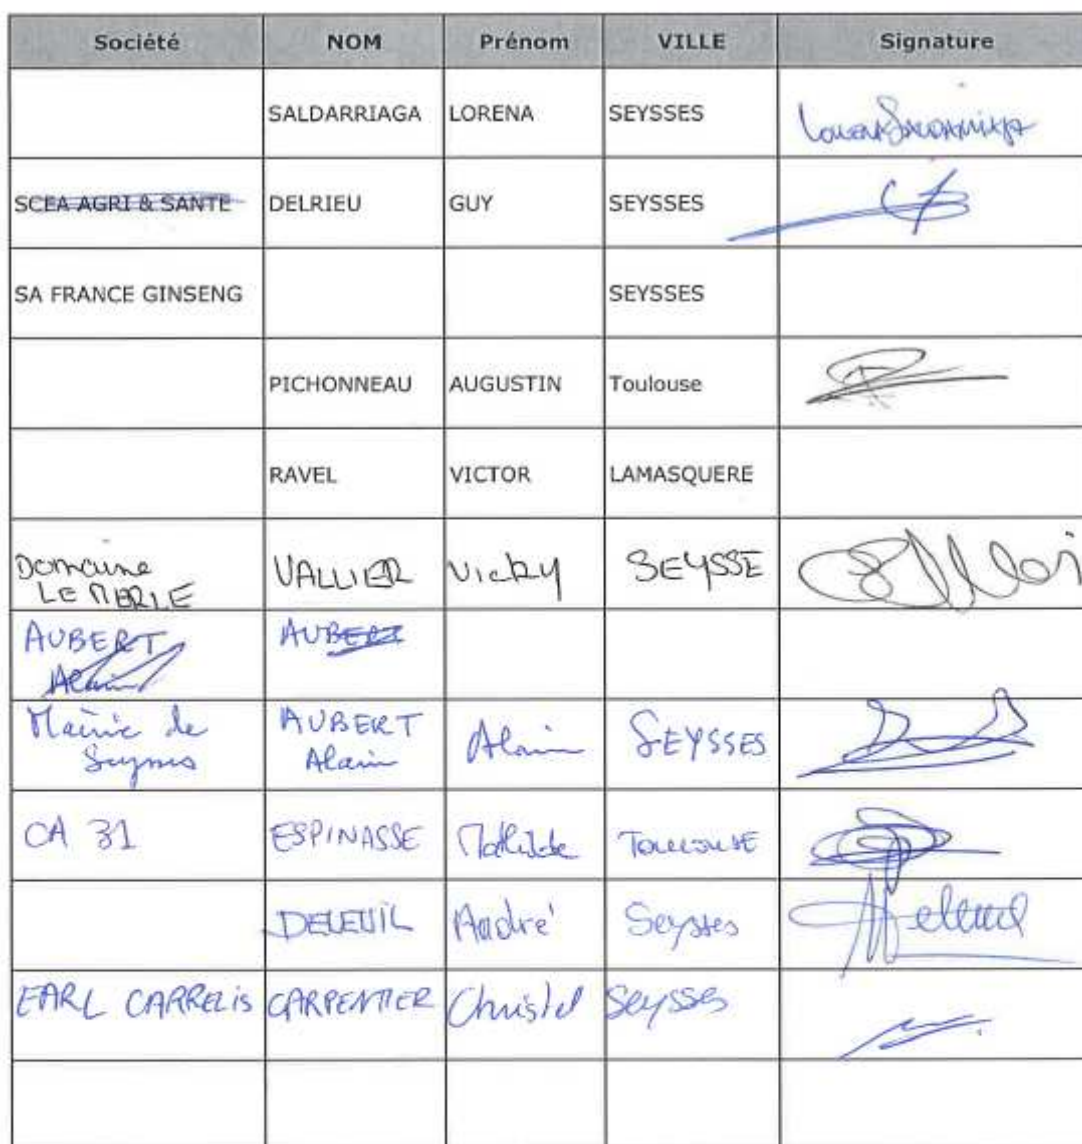 Société NOM Prénom VILLE Signature
SALDARRIAGA LORENA SEYSSES
SCEA AGRI & SANTE DELRIEU GUY SEYSSES
SA FRANCE GINSENG SEYSSES
PICHONNEAU AUGUSTIN Toulouse
RAVEL VICTOR LAMASQUERE
Domaine
LE MERLE VALLIER Vicky SEYSSE
AUBERT AUBERT
Alain
Mairie de AUBERT Alain SEYSSES
Seysses Alain
CA 31 ESPINASSE Mathilde TOULOUSE
DELEUIL André Seysses
EARL CARRELIS CARPENTIER Christel Seysses